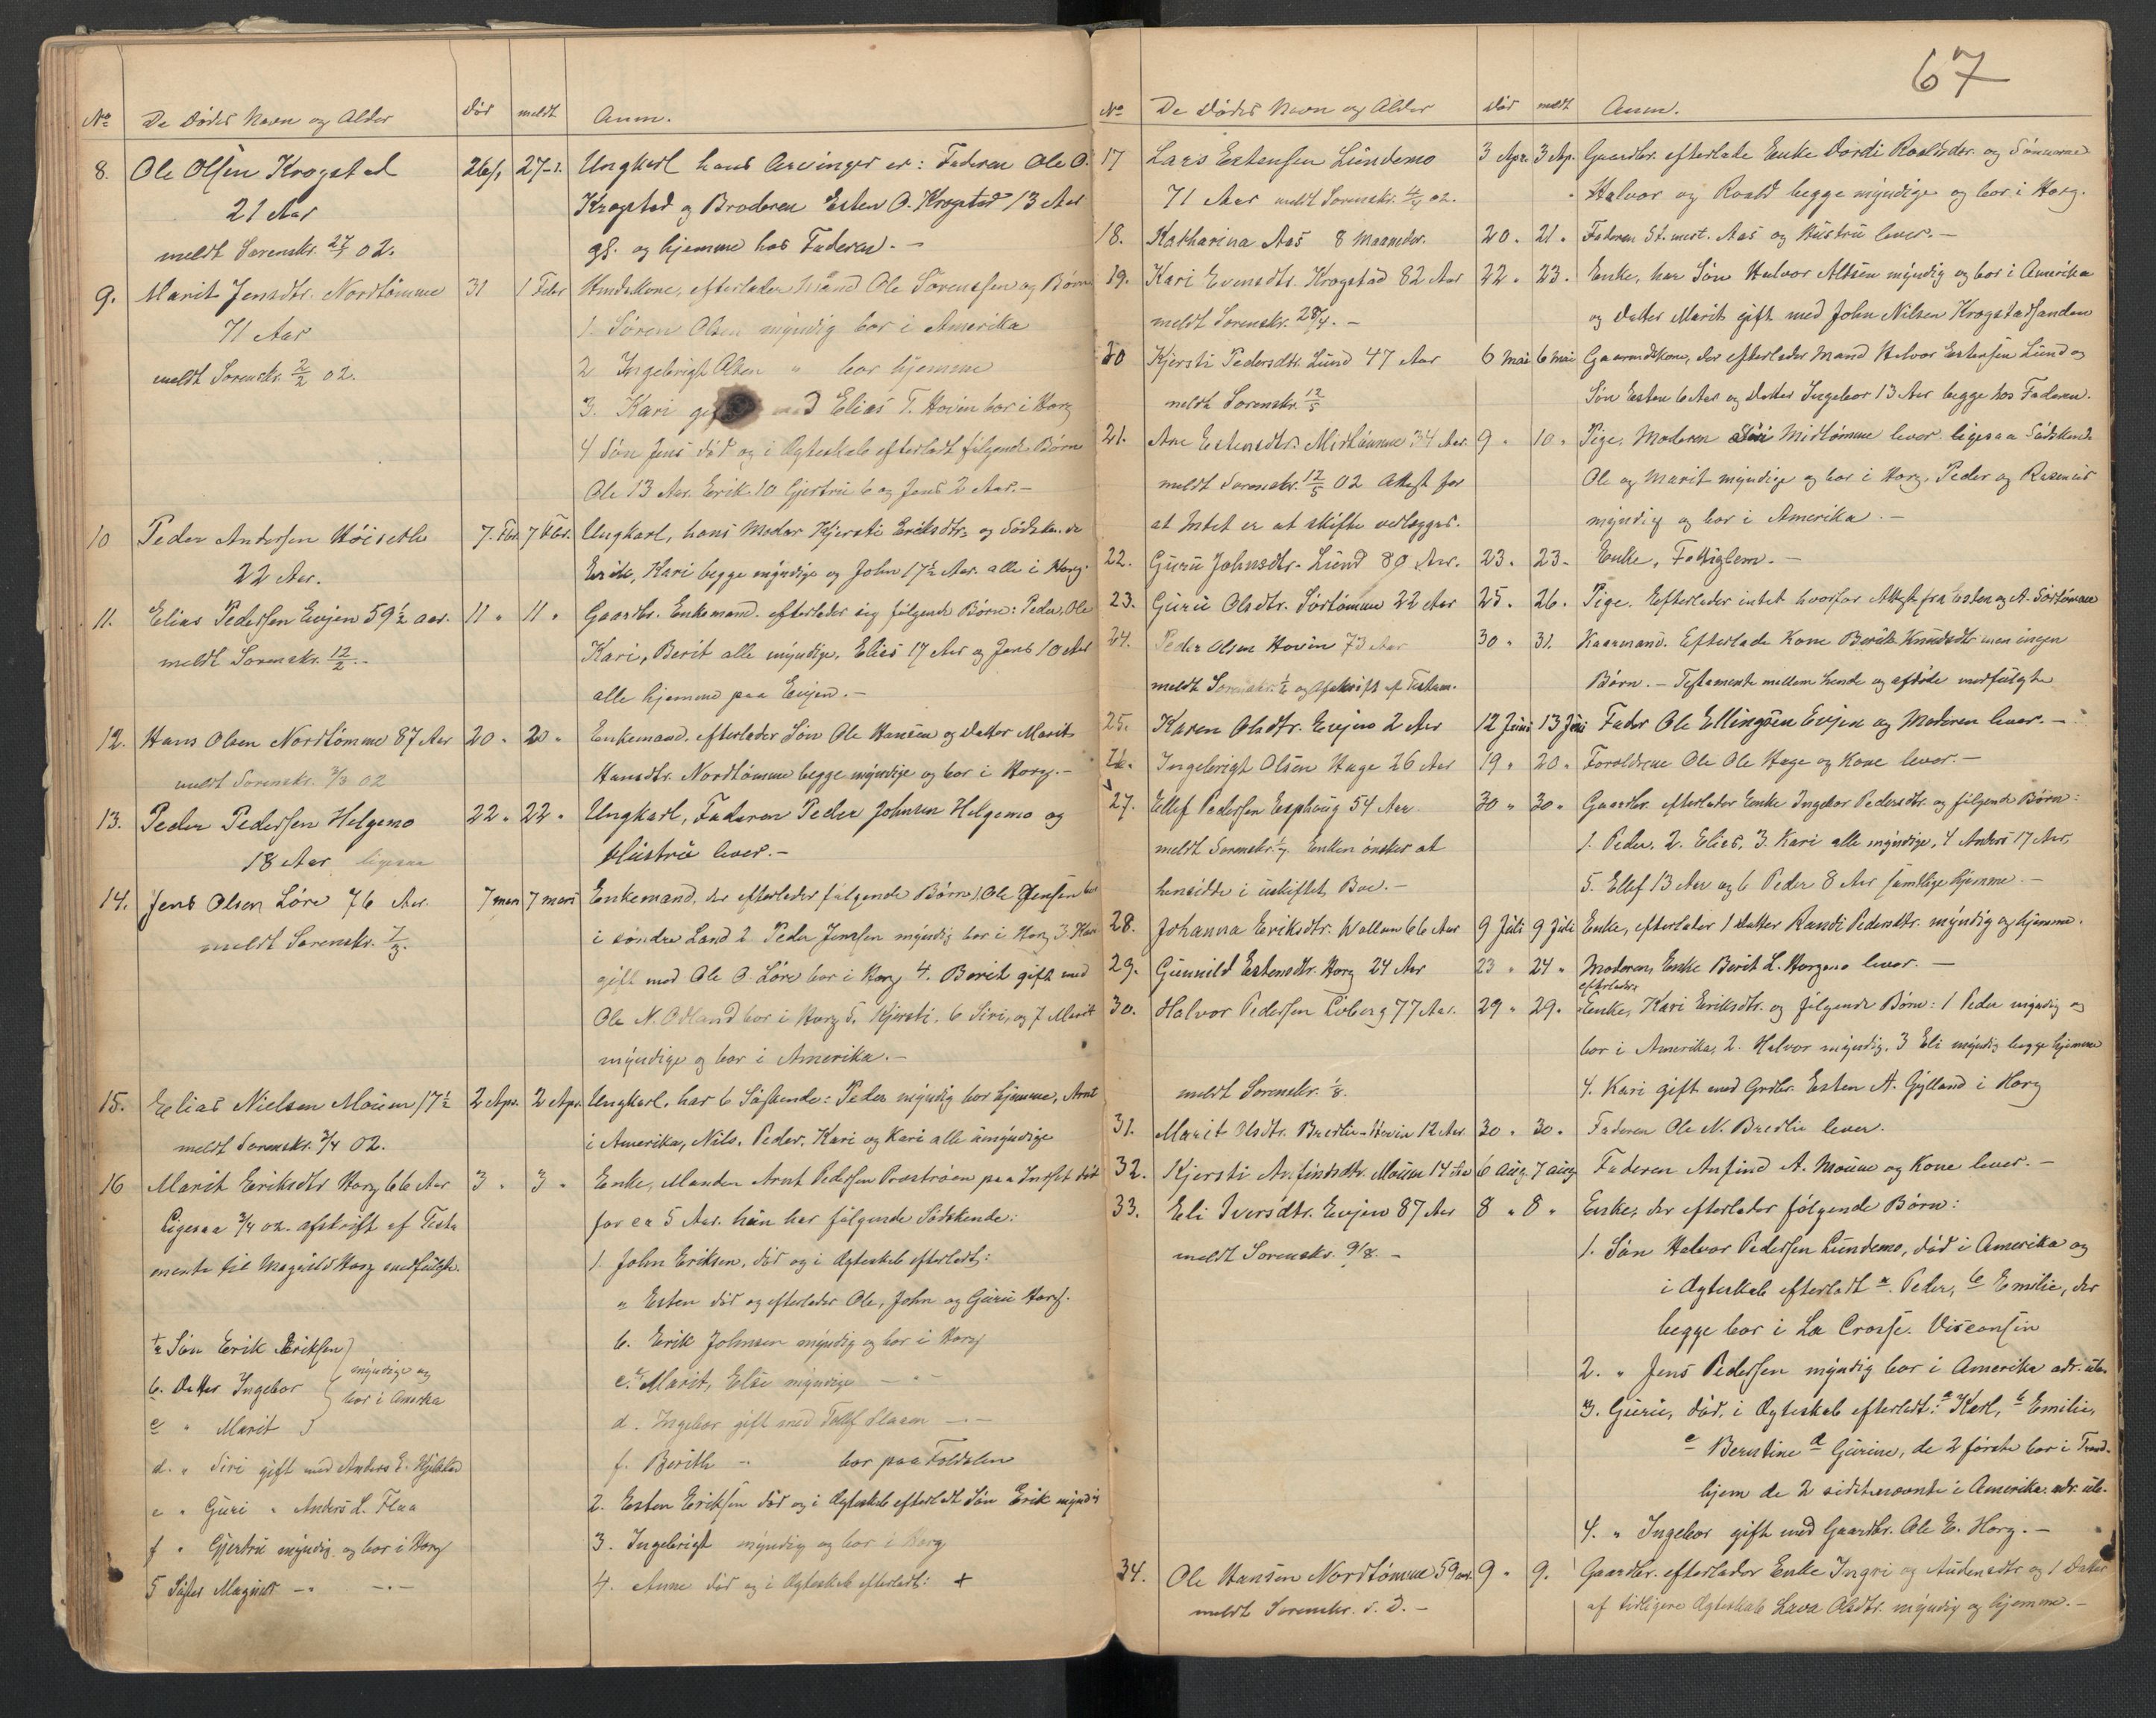 No De Dödes Navn og Alder Död meldt Anm.
8. Ole Olsen Krogstad 26/1 27-1. Ungkarl hans Arvinger er: Faderen Ole O.
21 Aar Krogstad og Broderen Esten O. Krogstad 13 Aar
meldt Sorenskr. 27/1 02. gl. og hjemme hos Faderen. -
9. Marit Jensdtr. Nordtömme 31 1 Febr efterlader Mand Ole Sörensen og Børn
71 Aar 1. Sören Olsen myndig bor i Amerika
meldt Sorenskr. 2/2 02. 2 Ingebrigt Olsen " bor hjemme
3. Kari med Elias T. Hovin bor i Horg
4 Søn Jens död og i Ægteskab efterladt følgende Børn
Ole 13 Aar. Erik 10 Gjertru 6 og Jens 2 Aar. -
10 Peder Andersen Höiseth 7. Fbr. 7 Fbr. Ungkarl, hans Moder Kjersti Eriksdtr. og Södskende
22 Aar. Erik, Kari begge myndige og John 17½ Aar. alle i Horg.
11. Elias Pedersen Evjen 59½ aar. 11 " 11 " Gaardbr. Enkemand. efterlader sig følgende Børn: Peder, Ole
meldt Sorenskr. 12/2. Kari, Berit alle myndige, Elias 17 Aar og Jens 10 Aar
alle hjemme paa Evjen. -
12. Hans Olsen Nordtömme 87 Aar 20 " 20 " Enkemand. efterlader Søn Ole Hansen og Datter Marit
meldt Sorenskr. 3/3 02 Hansdtr. Nordtömme begge myndige og bor i Horg. -
13. Peder Pedersen Helgemo 22 " 22 " Ungkarl, Faderen Peder Johnsen Helgemo og
18 Aar ligesaa Hustru lever. -
14. Jens Olsen Löre 76 Aar. 7 mars 7 mars Enkemand, der efterlader følgende Børn 1. Ole Jensen bor
meldt Sorenskr. 7/3. i söndre Land 2 Peder Jensen myndig bor i Horg 3. Kari
gift med Ole O. Löre bor i Horg 4. Berit gift med
Ole N. Ödland bor i Horg 5. Kjersti, 6 Siri, og 7 Marit
myndige og bor i Amerika. -
15. Elias Nielsen Mouen 17½ 2 Apr. 2 Apr. Ungkarl, har 6 Söskende: Peder myndig bor hjemme, Arnt
meldt Sorenskr. 3/4 02. i Amerika, Nils, Peder, Kari og Kari alle umyndige
16 Marit Eriksdtr Horg 66 Aar 3 " 3 " Enke, Manden Arnt Pedersen Præströen paa Indset död
Ligesaa 3/4 02. afskrift af Testa for ca 5 Aar. hun har følgende Södskende:
mente til Magnild Horg medfulgte. 1. John Eriksen, död og i Ægteskab efterladt:
a Esten död og efterlader Ole, John og Guru Horg.
b. Erik Johnsen myndig og bor i Horg
c. Marit, Else myndige - " -
d. Ingebor gift med Tollef - " -
f. Berith - " bor paa Foldalen
2. Esten Eriksen död og i Ægteskab efterladt Søn Erik myndig
3. Ingebrigt myndig og bor i Horg
4. Anne död og i Ægteskab efterladt: +
+ a Søn Erik Eriksen } myndige og
b. Datter Ingebor } bor i Amerika
c " Marit }
d. " Siri gift med Anders E.
e " Guri " Anders L. Flaa
f " Gjertru myndig og bor i Horg
5 Söster Magnild - " - " -
67
No De Dödes Navn og Alder Död meldt Anm.
17 Lars Estensen Lundemo 3 Apr. 3 Ap. Gaardbr. efterlade Enke Dordi Roaldsdtr. og Sønnerne
71 Aar meldt Sorenskr. 4/4 02. Halvor og Roald begge myndige og bor i Horg.
18. Katharina Aas 8 Maaneder. 20 " 21 " Faderen St. mest. Aas og Hustru lever. -
19. Kari Evensdtr. Krogstad 82 Aar 22 " 23. Enke, har Søn Halvor Altsen myndig og bor i Amerika
meldt Sorenskr. 28/4. - og Datter Marit gift med John Nilsen Krogstadsanden
20 Kjersti Pedersdtr. Lund 47 Aar 6 Mai 6 mai Gaarmdskone, der efterlader Mand Halvor Estensen Lund og
meldt Sorenskr. 12/5 Søn Esten 6 Aar og Datter Ingebor 13 Aar begge hos Faderen.
21. Ane Estensdtr. Midtömme 34 Aar. 9 " 10 " Pige. Moderen Siri Midtömme lever. ligesaa Södskende
meldt Sorenskr. 12/5 02 Attest for Ole og Marit myndige og bor i Horg, Peder og Rasmus
at Intet er at skifte vedlægges. myndig og bor i Amerika. -
22. Guru Johnsdtr. Lund 80 Aar. 23 " 23 - Enke, Fattiglem. -
23. Guru Olsdtr. Sörtömme 22 Aar 25 " 26 " Pige. Efterlader intet hvorfor Attest fra Esten og A. Sörtömme
24. Peder Olsen Hovin 73 Aar 30 " 31. Kaarmand. Efterlade Kone Berit Knudsdtr men ingen
meldt Sorenskr. og Afskrift af Testam. Børn. - Testamente mellem hende og afdöde medfulgte
25. Karen Olsdtr. Evjen 2 Aar 12 Juni 13 Juni Fader Ole Ellingsen Evjen og Moderen lever. -
26. Ingebrigt Olsen Hage 26 Aar 19 " 20 " Foreldrene Ole Ole Hage og Kone lever. -
27. Ellef Pedersen Esphaug 54 Aar 30 " 30 " Gaardbr. efterlader Enke Ingebor Pedersdtr. og følgende Børn:
meldt Sorenskr. 1/7. Enken ønsker at 1. Peder, 2. Elias, 3. Kari alle myndige, 4 Anders 17 Aar,
hensidde i uskiftet Bo. - 5. Ellef 13 Aar og 6 Peder 8 Aar samtlige hjemme. -
28. Johanna Eriksdtr. Wollum 66 Aar 9 Juli 9 Juli Enke, efterlader 1 Datter Randi Pedersdtr. myndig og hjemme.
29. Gunnild Estensdtr. Horg 24 Aar 23 " 24 " Moderen, Enke Berit L. Horgmo lever. -
30. Halvor Pedersen Löberg 77 Aar. 29 " 29 " efterlader Enke, Kari Eriksdtr. og følgende Børn: 1 Peder myndig og
bor i Amerika, 2. Halvor myndig, 3 Eli myndig begge hjemme
meldt Sorenskr. 1/8. 4. Kari gift med Grdbr. Esten A. Gylland i Horg
31. Marit Olsdtr. Bredlie-Hovin 12 Aar 30 " 30 " Faderen Ole N. Bredlie lever.
32. Kjersti Anfindsdtr. Mouen 14 Aar 6 Aug. 7 aug Faderen Anfind A. Mouen og Kone lever. -
33. Eli Iversdtr. Evjen 87 Aar 8 " 8 " Enke, der efterlader følgende Børn:
meldt Sorenskr. 9/8. - 1. Søn Halvor Pedersen Lundemo, död i Amerika og
i Ægteskab efterladt a. Peder, b Emilie, der
begge bor i La Crosse. Visconsin
2. " Jens Pedersen myndig bor i Amerika adr. ube.
3. Guru, död, i Ægteskab efterladt: a Karl, b Emilie,
c Berntine d Gurine, de 2 første bor i Trond-
hjem de 2 sidstnævnte i Amerika adr. ube.
4. " Ingebor gift med Gaardbr. Ole E. Horg. -
34. Ole Hansen Nordtömme 59 aar. 9 " 9. Gaardbr. efterlader Enke Ingri og Audensdtr og 1 Datter
meldt Sorenskr. s. D. - af tidligere Ægteskab Lava Olsdtr. myndig og hjemme. -